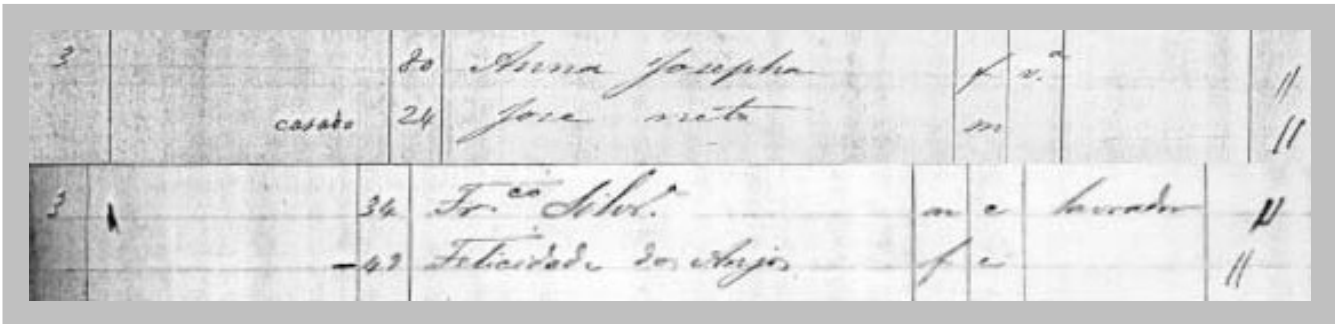 3 80 Anna Josepha f v.ª //
casado 24 Jose neto m //
3 34 Fr.co Silvr.ª m c lavrador //
-48 Felicidade dos Anjos f c //